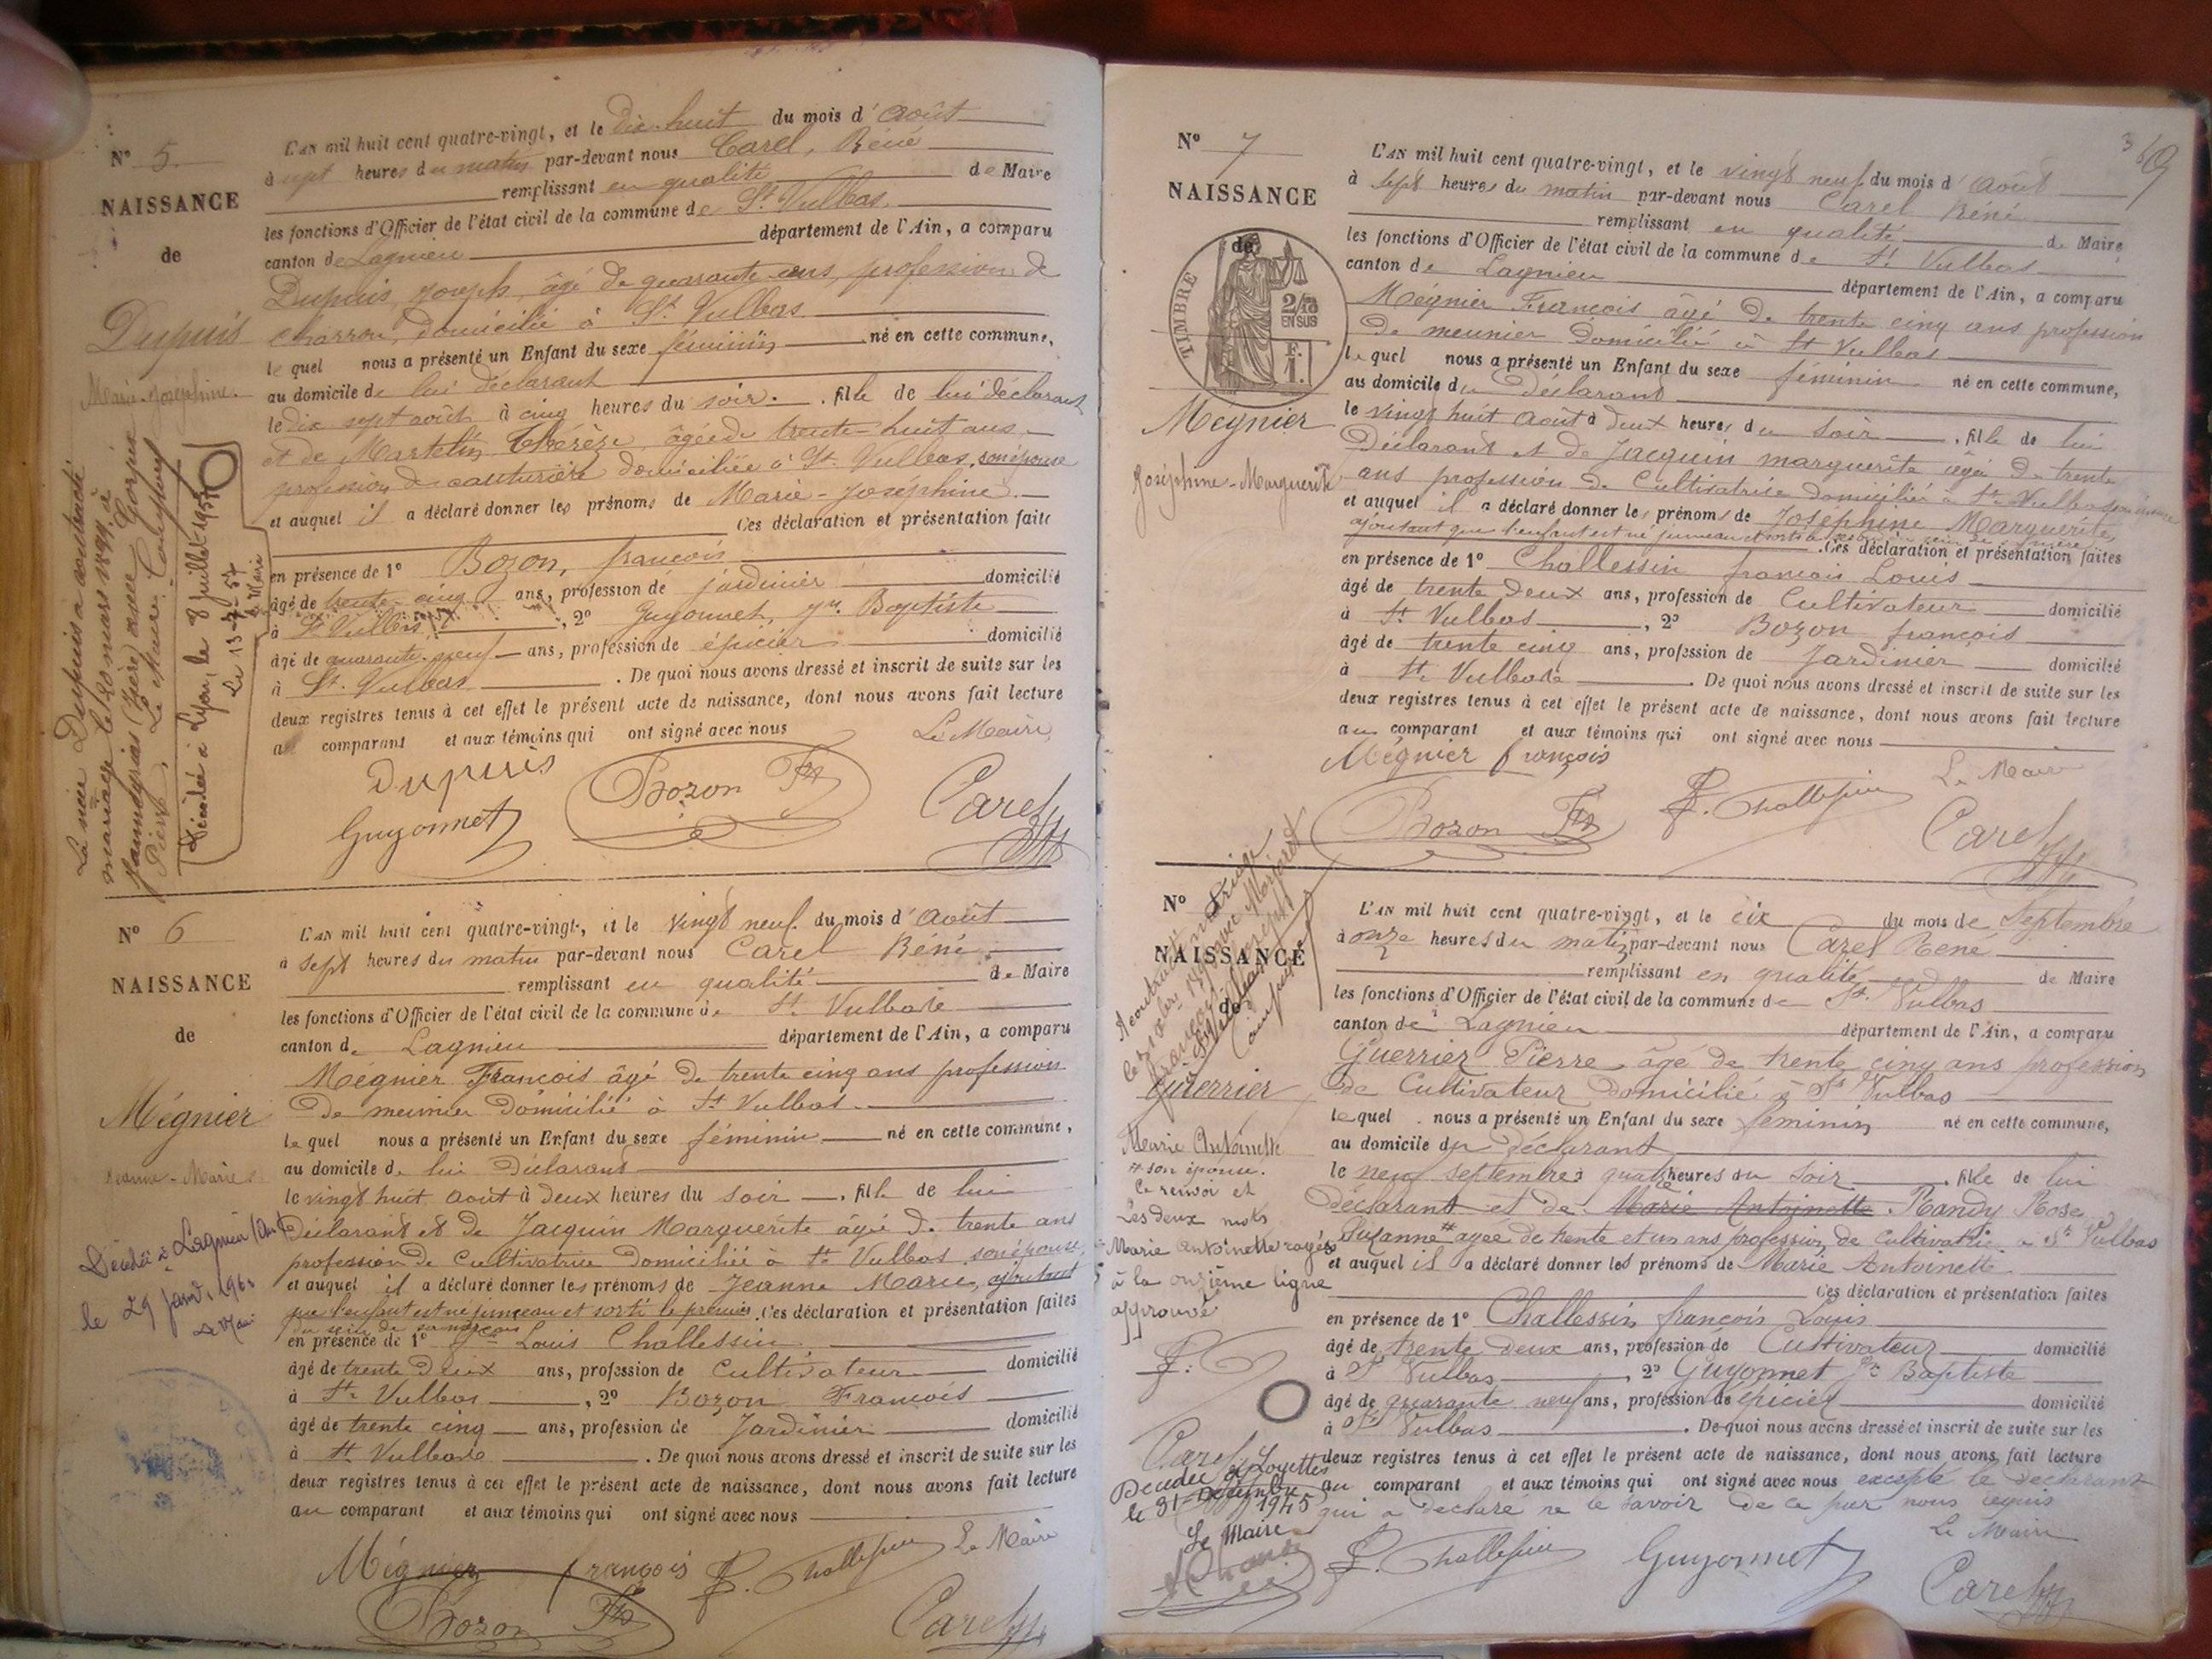 N° 5.
NAISSANCE
de
Dupuis
Marie-Joséphine.
L'AN mil huit cent quatre-vingt, et le dix-huit du mois d'Août
à sept heures du matin par-devant nous Carel, Réné
remplissant en qualité de Maire
les fonctions d'Officier de l'état civil de la commune de St. Vulbas.
canton de Lagnieu département de l'Ain, a comparu
Dupuis, Joseph, âgé de quarante ans, profession de
charron, domicilié à St. Vulbas
le quel nous a présenté un Enfant du sexe féminin né en cette commune,
au domicile de lui déclarant
le dix sept août à cinq heures du soir. fille de lui déclarant
et de Martelin Thérèse, âgée de trente-huit ans
profession de couturière domiciliée à St. Vulbas, son épouse
et auquel il a déclaré donner les prénoms de Marie-Joséphine.
Ces déclaration et présentation faite
en présence de 1° Bozon, françois
âgé de trente-cinq ans, profession de jardinier domicilié
à St Vulbas, 2° Guyonnet, Jn. Baptiste
âgé de quarante-neuf ans, profession de épicier domicilié
à St. Vulbas. De quoi nous avons dressé et inscrit de suite sur les
deux registres tenus à cet effet le présent acte de naissance, dont nous avons fait lecture
au comparant et aux témoins qui ont signé avec nous
Le Maire,
Dupuis
Bozon Fs
Guyonnet
Carel
La sieur Dupuis a contracté
mariage le 20 mars 1899 à
(Isère) avec
Pierre. Le Maire:
Décédée à Lyon, le 8 juillet 1957
Le 13-7-57
Le Maire
N° 6
NAISSANCE
de
Mégnier
Jeanne-Marie
L'AN mil huit cent quatre-vingt, et le vingt neuf du mois d'Août
à sept heures du matin par-devant nous Carel Réné
remplissant en qualité de Maire
les fonctions d'Officier de l'état civil de la commune de St Vulbas
canton de Lagnieu département de l'Ain, a comparu
Mégnier François âgé de trente cinq ans profession
de meunier domicilié à St Vulbas
le quel nous a présenté un Enfant du sexe féminin né en cette commune,
au domicile de lui Déclarant
le vingt huit août à deux heures du soir. fille de lui
Déclarant et de Jacquin Marguerite âgée de trente ans
profession de Cultivatrice domiciliée à St Vulbas son épouse,
et auquel il a déclaré donner les prénoms de Jeanne Marie, ajoutant
que l'enfant est né jumeau et sorti le premier Ces déclaration et présentation faites
du sein de sa mère
en présence de 1° Louis Challessin
âgé de trente deux ans, profession de Cultivateur domicilié
à St Vulbas, 2° Bozon François
âgé de trente cinq ans, profession de Jardinier domicilié
à St Vulbas. De quoi nous avons dressé et inscrit de suite sur les
deux registres tenus à cet effet le présent acte de naissance, dont nous avons fait lecture
au comparant et aux témoins qui ont signé avec nous
Mégnier françois
Challessin
Le Maire
Bozon Fs
Carel
Décédée à Lagnieu (Ain)
le 29 Janv. 196
Le Maire
N° 7
NAISSANCE
de
TIMBRE
2/10
EN SUS
F.
1.
Mégnier
Joséphine-Marguerite
L'AN mil huit cent quatre-vingt, et le vingt neuf du mois d'Août
à sept heures du matin par-devant nous Carel Réné
remplissant en qualité de Maire
les fonctions d'Officier de l'état civil de la commune de St Vulbas
canton de Lagnieu département de l'Ain, a comparu
Mégnier François âgé de trente cinq ans profession
de meunier domicilié à St Vulbas
le quel nous a présenté un Enfant du sexe féminin né en cette commune,
au domicile du Déclarant
le vingt huit Août à deux heures du soir. fille de lui
Déclarant et de Jacquin marguerite âgée de trente
ans profession de Cultivatrice domiciliée à St Vulbas son épouse
et auquel il a déclaré donner les prénoms de Joséphine Marguerite,
ajoutant que l'enfant est né jumeau et sorti
Ces déclaration et présentation faites
en présence de 1° Challessin françois Louis
âgé de trente deux ans, profession de Cultivateur domicilié
à St Vulbas, 2° Bozon françois
âgé de trente cinq ans, profession de Jardinier domicilié
à St Vulbas. De quoi nous avons dressé et inscrit de suite sur les
deux registres tenus à cet effet le présent acte de naissance, dont nous avons fait lecture
au comparant et aux témoins qui ont signé avec nous
Mégnier françois
Le Maire
Bozon Fs
Challessin
Carel
N°
NAISSANCE
de
Guerrier
Marie Antoinette
# son épouse.
Ce renvoi et
Les deux mots
Marie Antoinette rayés
à la onzième ligne
approuvé
Carel
Décédée à Loyettes
le 31 Décembre
1945
Le Maire
L'AN mil huit cent quatre-vingt, et le dix du mois de Septembre
à onze heures du matin par-devant nous Carel Réné
remplissant en qualité de Maire
les fonctions d'Officier de l'état civil de la commune de St. Vulbas
canton de Lagnieu département de l'Ain, a comparu
Guerrier Pierre âgé de trente cinq ans profession
de Cultivateur domicilié à St Vulbas
le quel nous a présenté un Enfant du sexe féminin né en cette commune,
au domicile du Déclarant
le neuf septembre à quatre heures du soir fille de lui
déclarant et de Marie Antoinette Randy Rose
Suzanne # agée de trente et un ans profession de cultivatrice à St Vulbas
et auquel il a déclaré donner les prénoms de Marie Antoinette
Ces déclaration et présentation faites
en présence de 1° Challessin françois Louis
âgé de trente deux ans, profession de Cultivateur domicilié
à St Vulbas, 2° Guyonnet Jn Baptiste
âgé de quarante neuf ans, profession de épicier domicilié
à St Vulbas. De quoi nous avons dressé et inscrit de suite sur les
deux registres tenus à cet effet le présent acte de naissance, dont nous avons fait lecture
au comparant et aux témoins qui ont signé avec nous excepté le déclarant
qui a déclaré ne le savoir de ce par nous requis
Le Maire
Challessin
Guyonnet
Carel